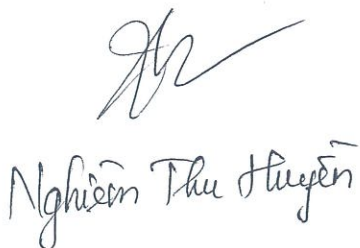 Nghiêm Thu Huyền